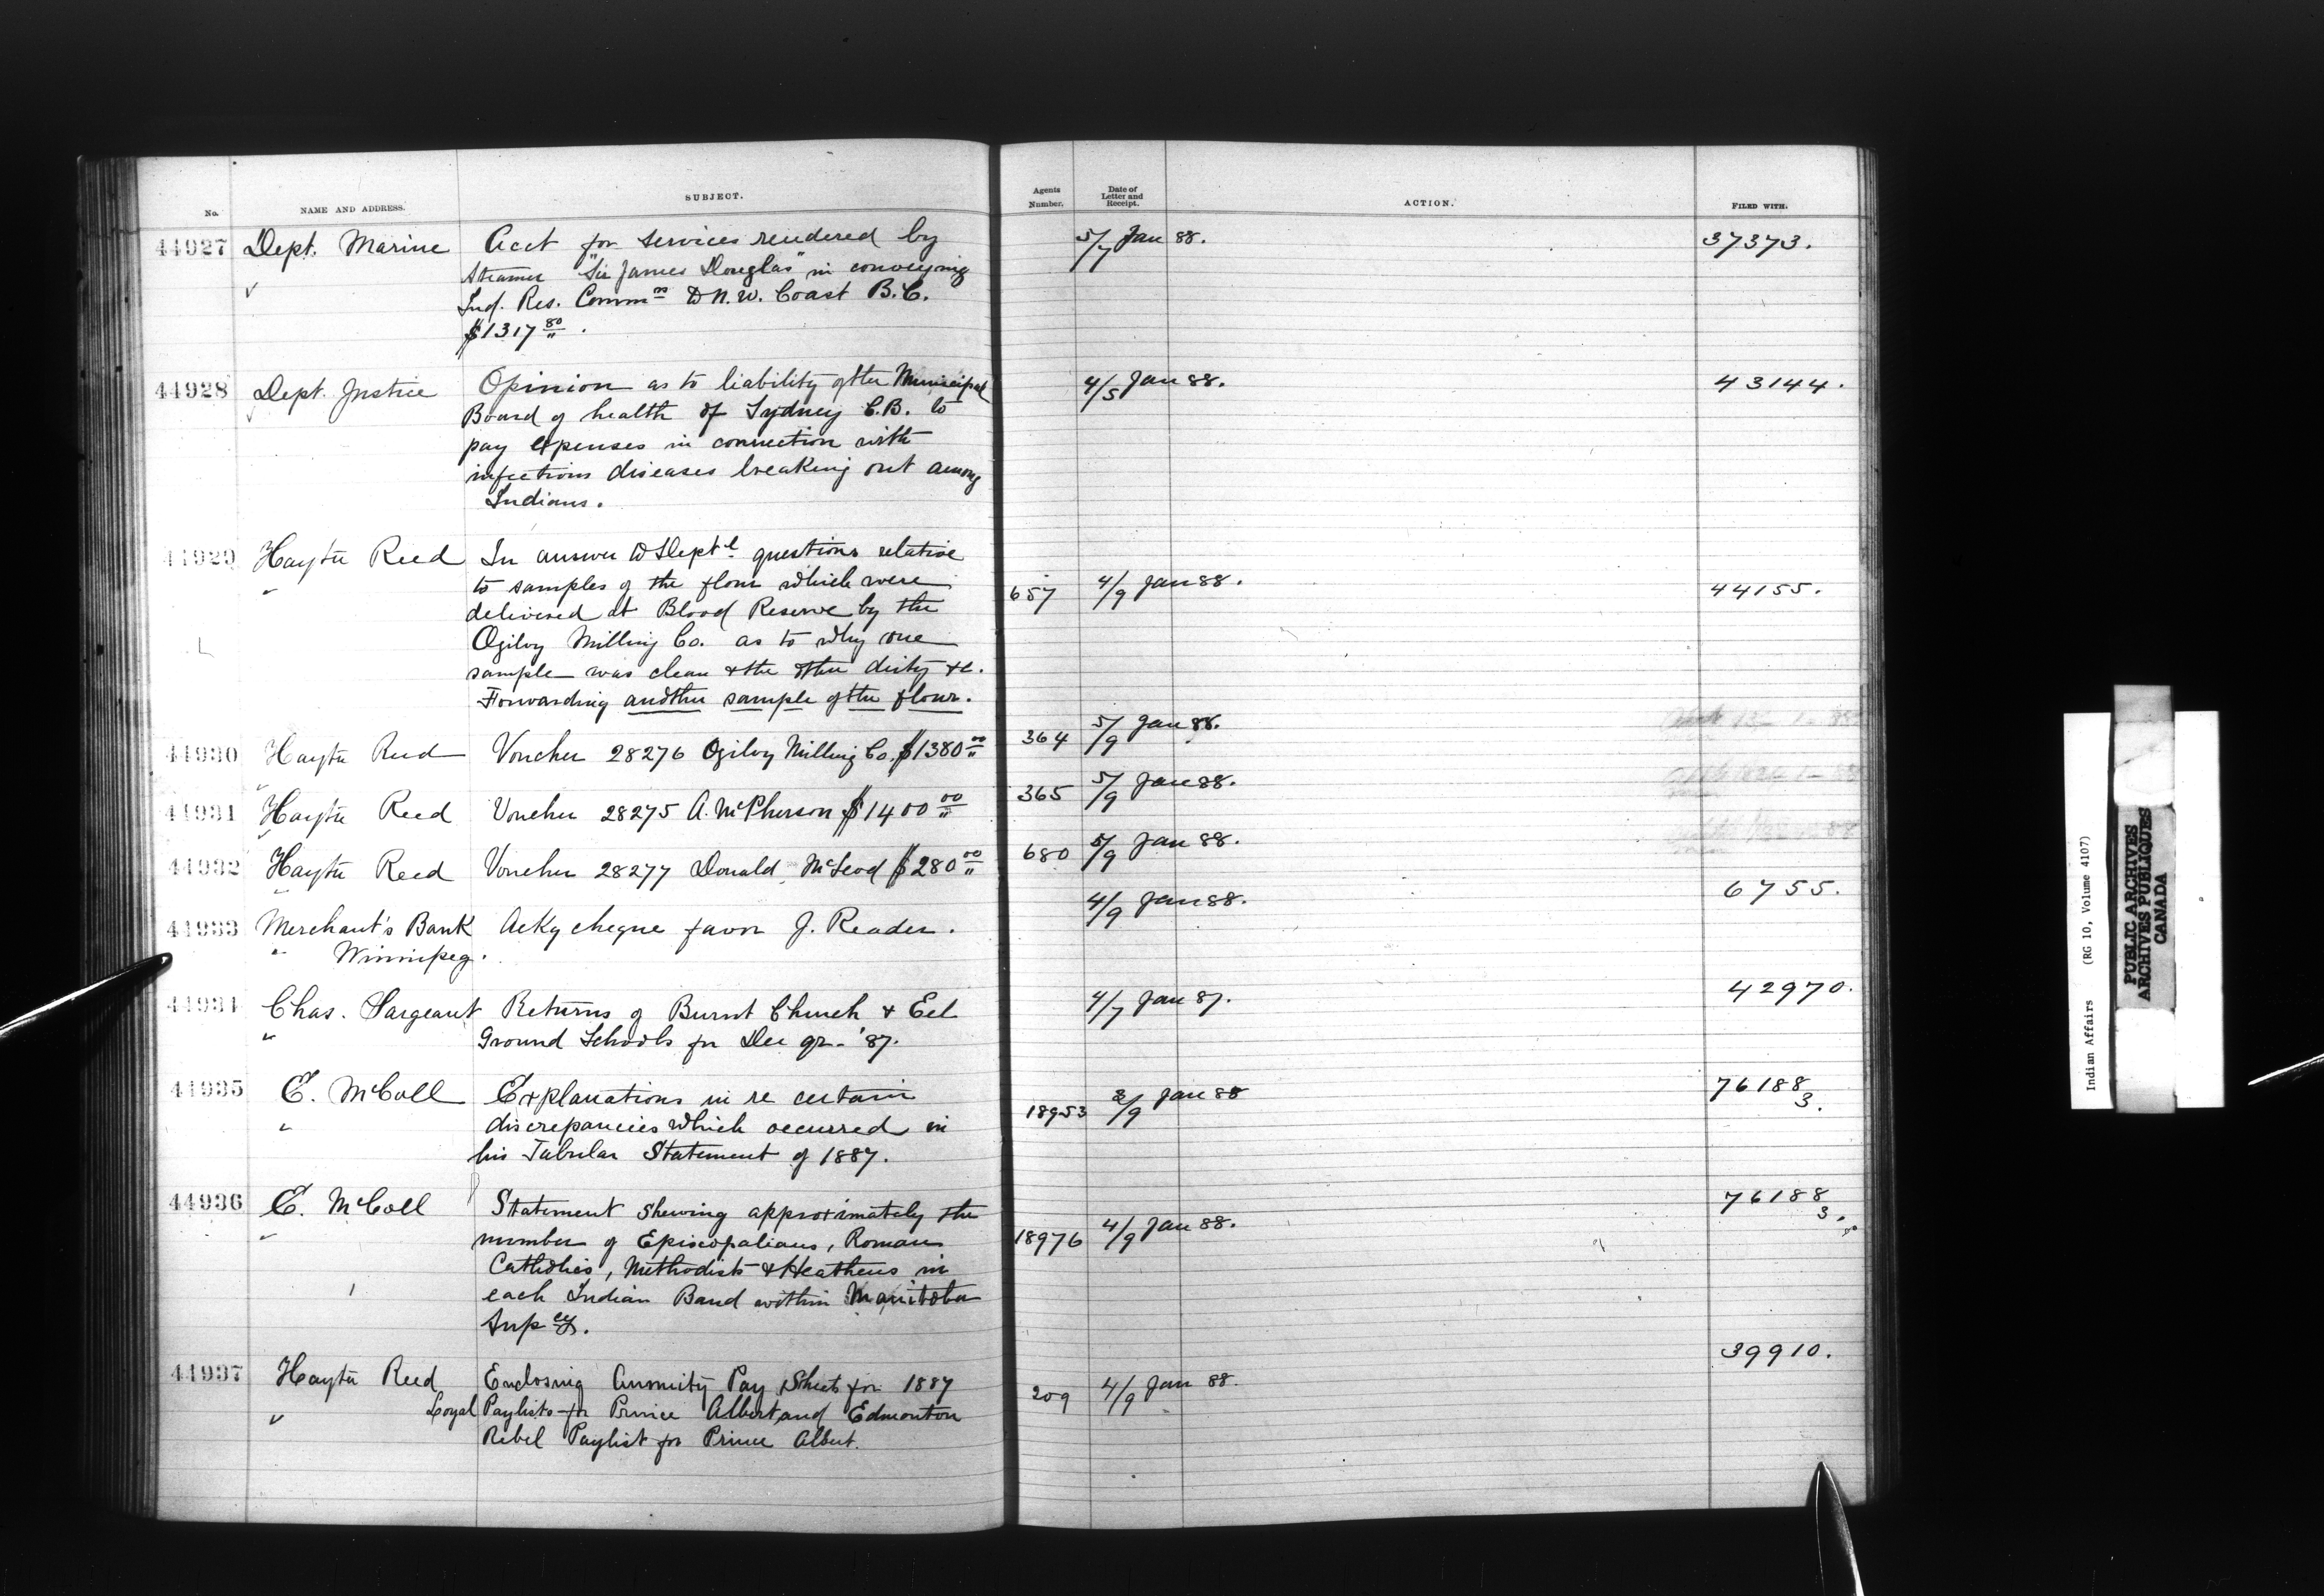 No.
NAME AND ADDRESS.
SUBJECT.
Agents Number.
Date of Letter and Receipt.
ACTION.
FILED WITH.
44927 Dept. Marine Acct for services rendered by 5/7 Jan 88. 37373.
Steamer "Sir James Douglas" in conveying
Ind. Res. Commn to N.W. Coast B.C.
$1317 80/" .
44928 Dept. Justice Opinion as to liability of the Municipal 4/5 Jan 88. 43144.
Board of health of Sydney C.B. to
pay expenses in connection with
infectious diseases breaking out among
Indians.
44929 Hayter Reed In answer to Deptl questions relative
to samples of the flour which were 657 4/9 Jan 88. 44155.
delivered at Blood Reserve by the
Ogilvy Milling Co. as to why one
sample was clean & the other dirty &c.
Forwarding another sample of the flour.
44930 Hayter Reed Voucher 28276 Ogilvy Milling Co. $1380 00/" 364 5/9 Jan 88.
44931 Hayter Reed Voucher 28275 A. McPherson $1400 00/" 365 5/9 Jan 88.
44932 Hayter Reed Voucher 28277 Donald McLeod $280 00/" 680 5/9 Jan 88.
44933 Merchant's Bank Acky cheque favor J. Reader. 4/9 Jan 88. 6755.
Winnipeg.
44934 Chas. Sargeant Returns of Burnt Church & Eel 4/7 Jan 87. 42970.
Ground Schools for Dec qr. '87.
44935 E. McColl Explanations in re certain 18953 3/9 Jan 88 76188/3.
discrepancies which occurred in
his Tabular Statement of 1887.
44936 E. McColl Statement shewing approximately the 76188/3.
number of Episcopalians, Roman 18976 4/9 Jan 88.
Catholics, Methodists & Heathens in
each Indian Band within Manitoba
Supcy.
44937 Hayter Reed Enclosing Annuity Pay Sheets for 1887 209 4/9 Jan 88. 39910.
Loyal Paylists for Prince Albert and Edmonton
Rebel Paylist for Prince Albert.
Indian Affairs (RG 10, Volume 4107)
PUBLIC ARCHIVES
ARCHIVES PUBLIQUES
CANADA